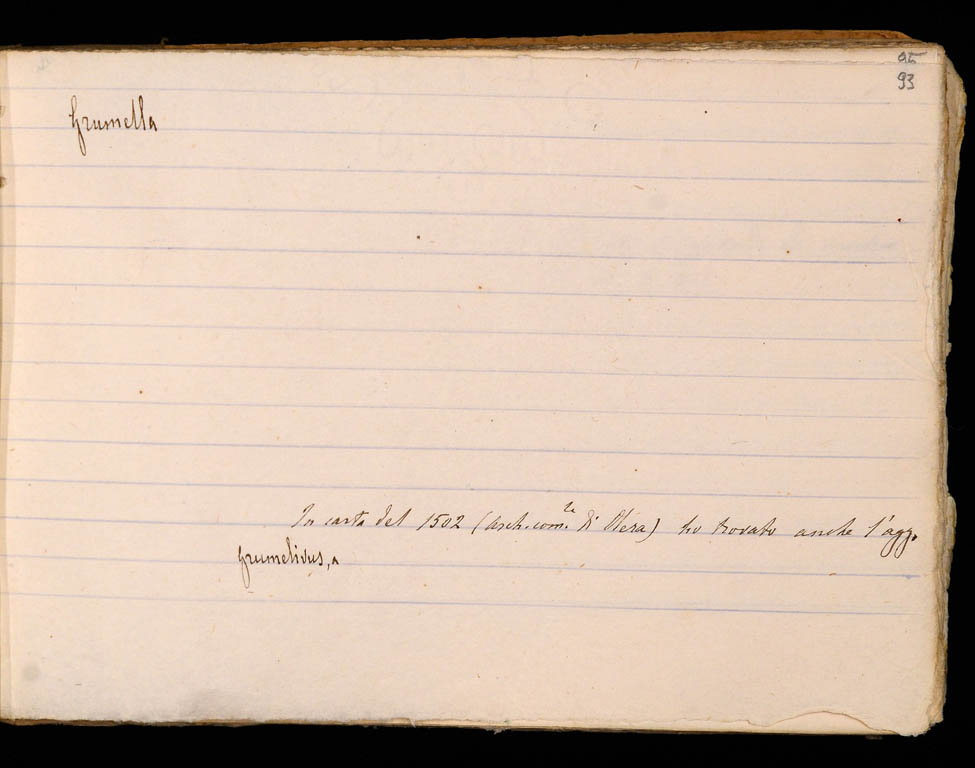 95
93
Grumella
In carta del 1502 (Arch. com.le di Olera) ho trovato anche l'agg.
grumelivus, a